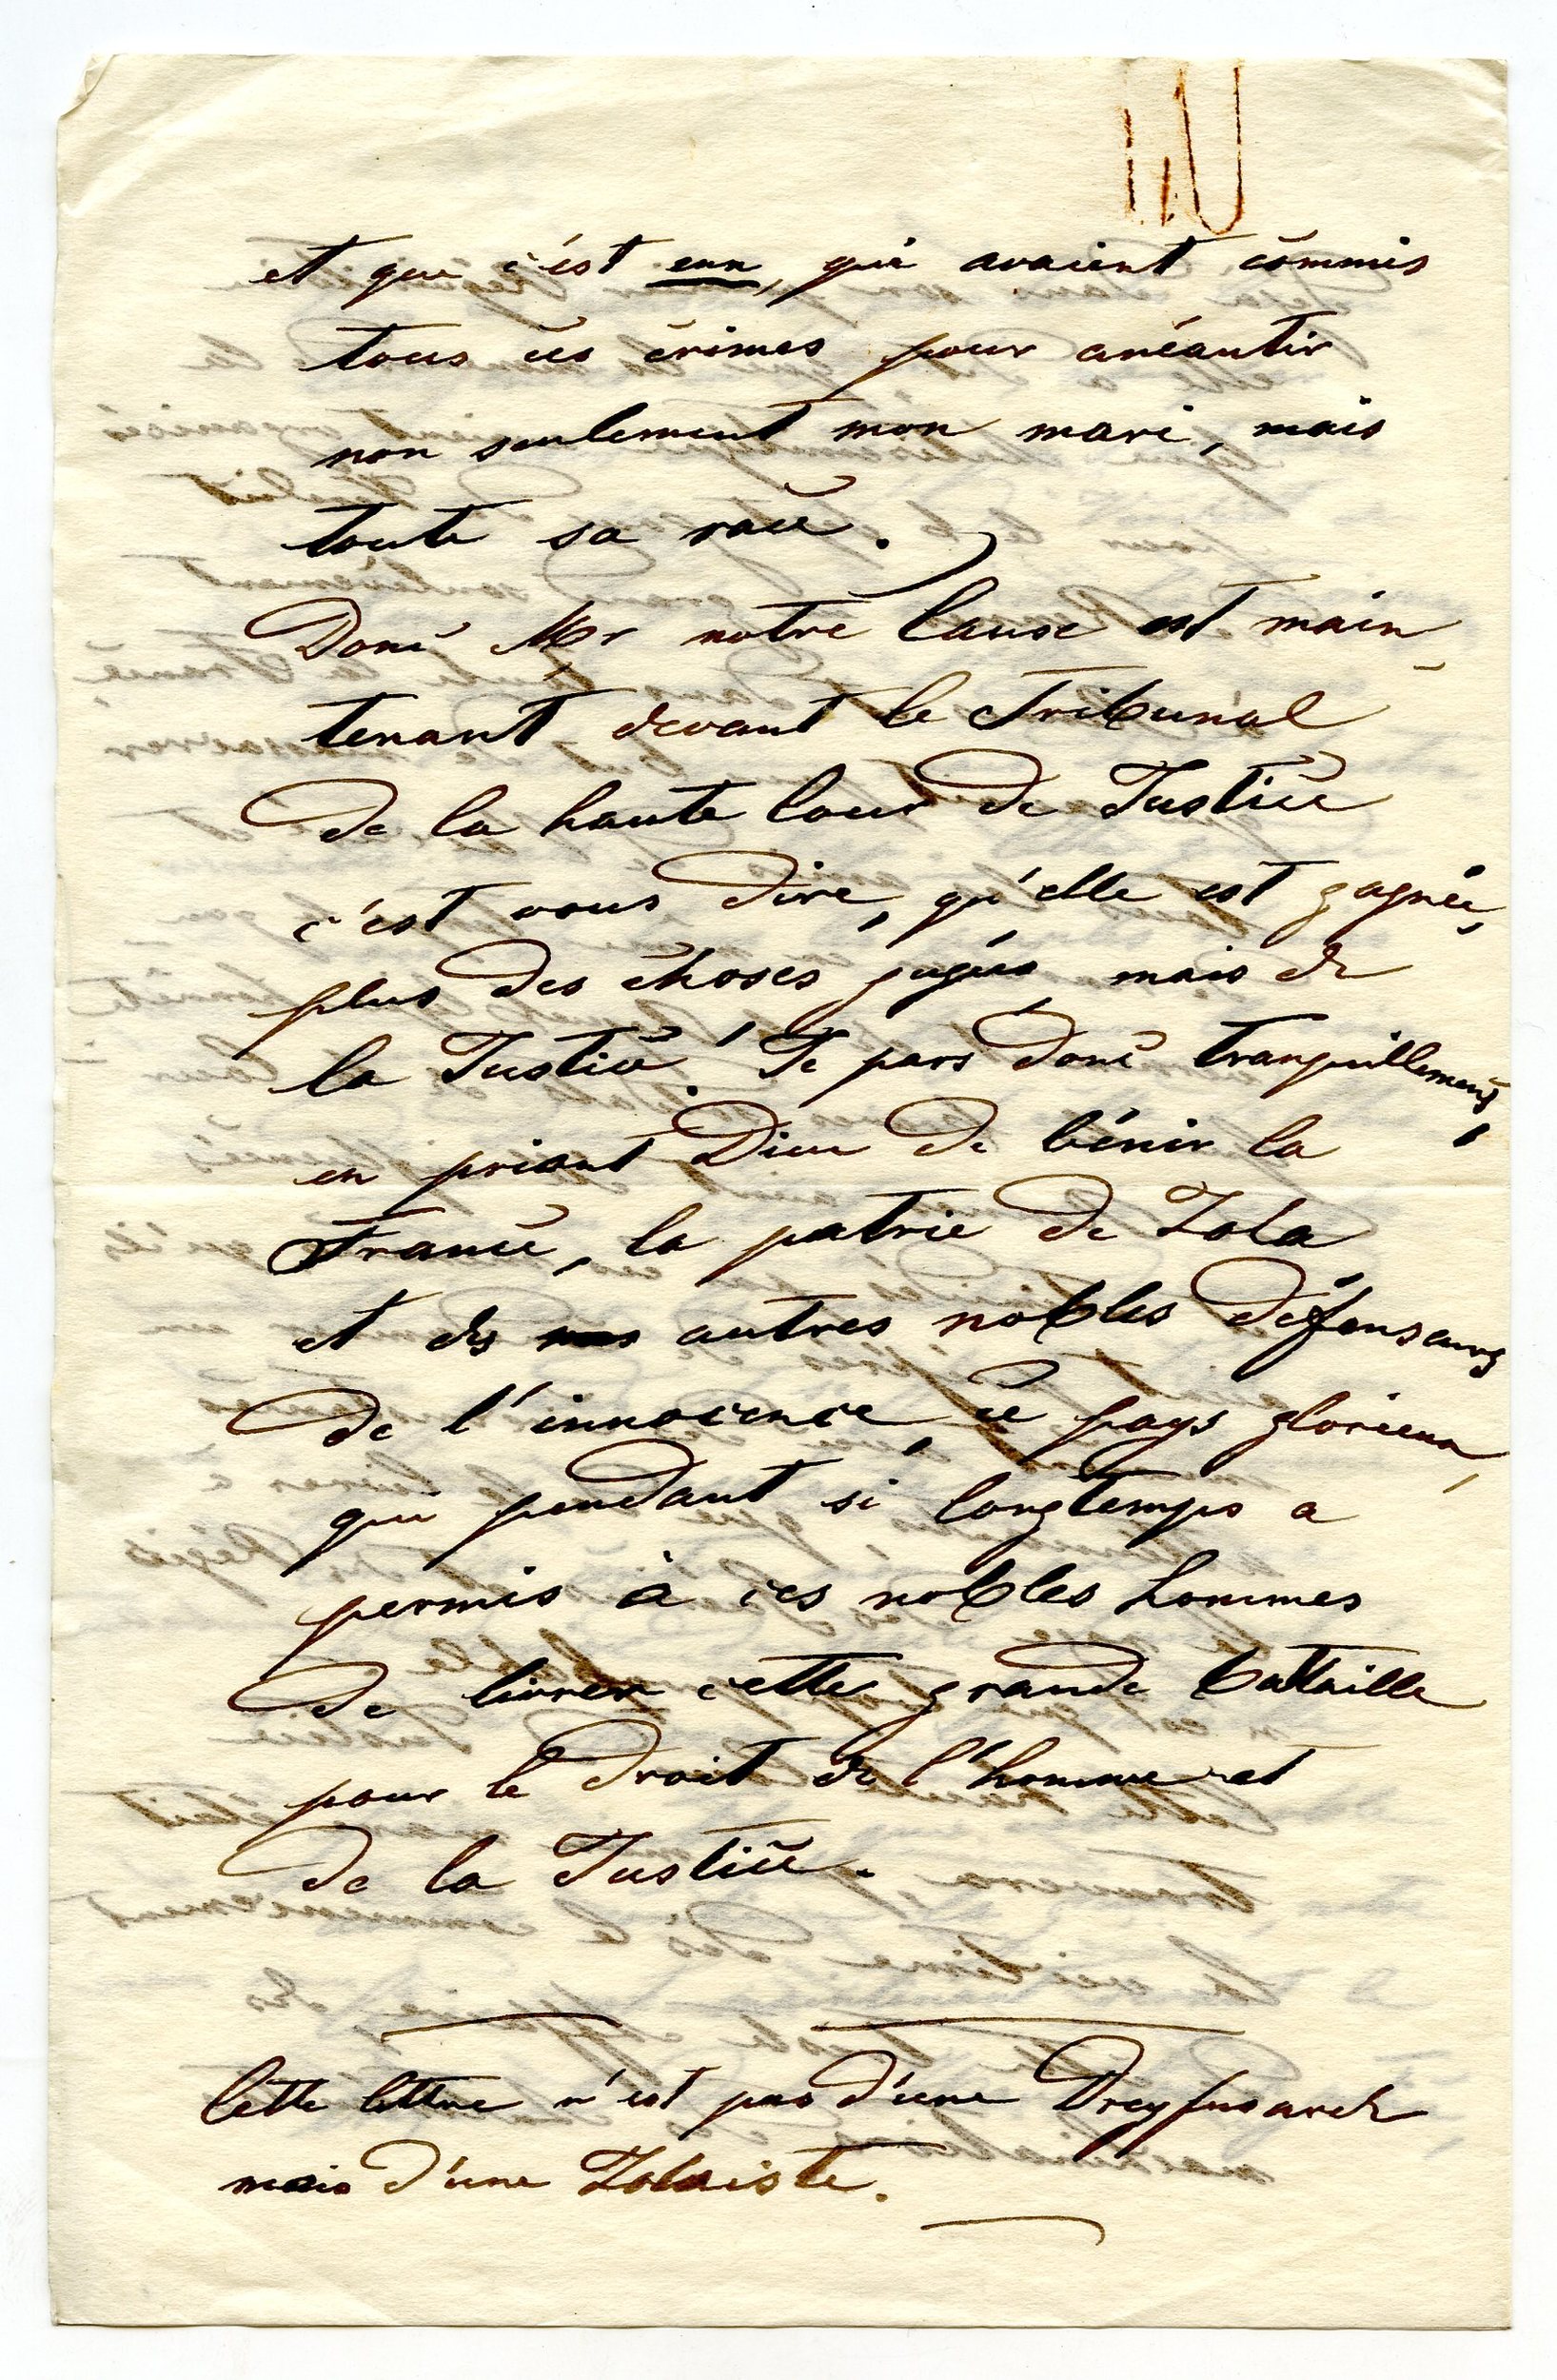 et que c'est eux, qui avaient commis
tous ces crimes pour anéantir
non seulement mon mari, mais
toute sa race.
Donc Mr notre Cause est main
tenant devant le Tribunal
de la haute Cour de Justice
c'est vous dire, qu'elle est gagnée,
plus des choses jugées mais de
la Justice! Je pars donc tranquillement,
en priant Dieu de bénir la
France, la patrie de Zola
et des autres nobles défenseurs
de l'innocence, ce pays glorieux,
qui pendant si longtemps a
permis à ces nobles hommes
de livrer cette grande bataille
pour le droit de l'homme et
de la Justice.
Cette lettre n'est pas d'une Dreyfusarde
mais d'une Zolaiste.